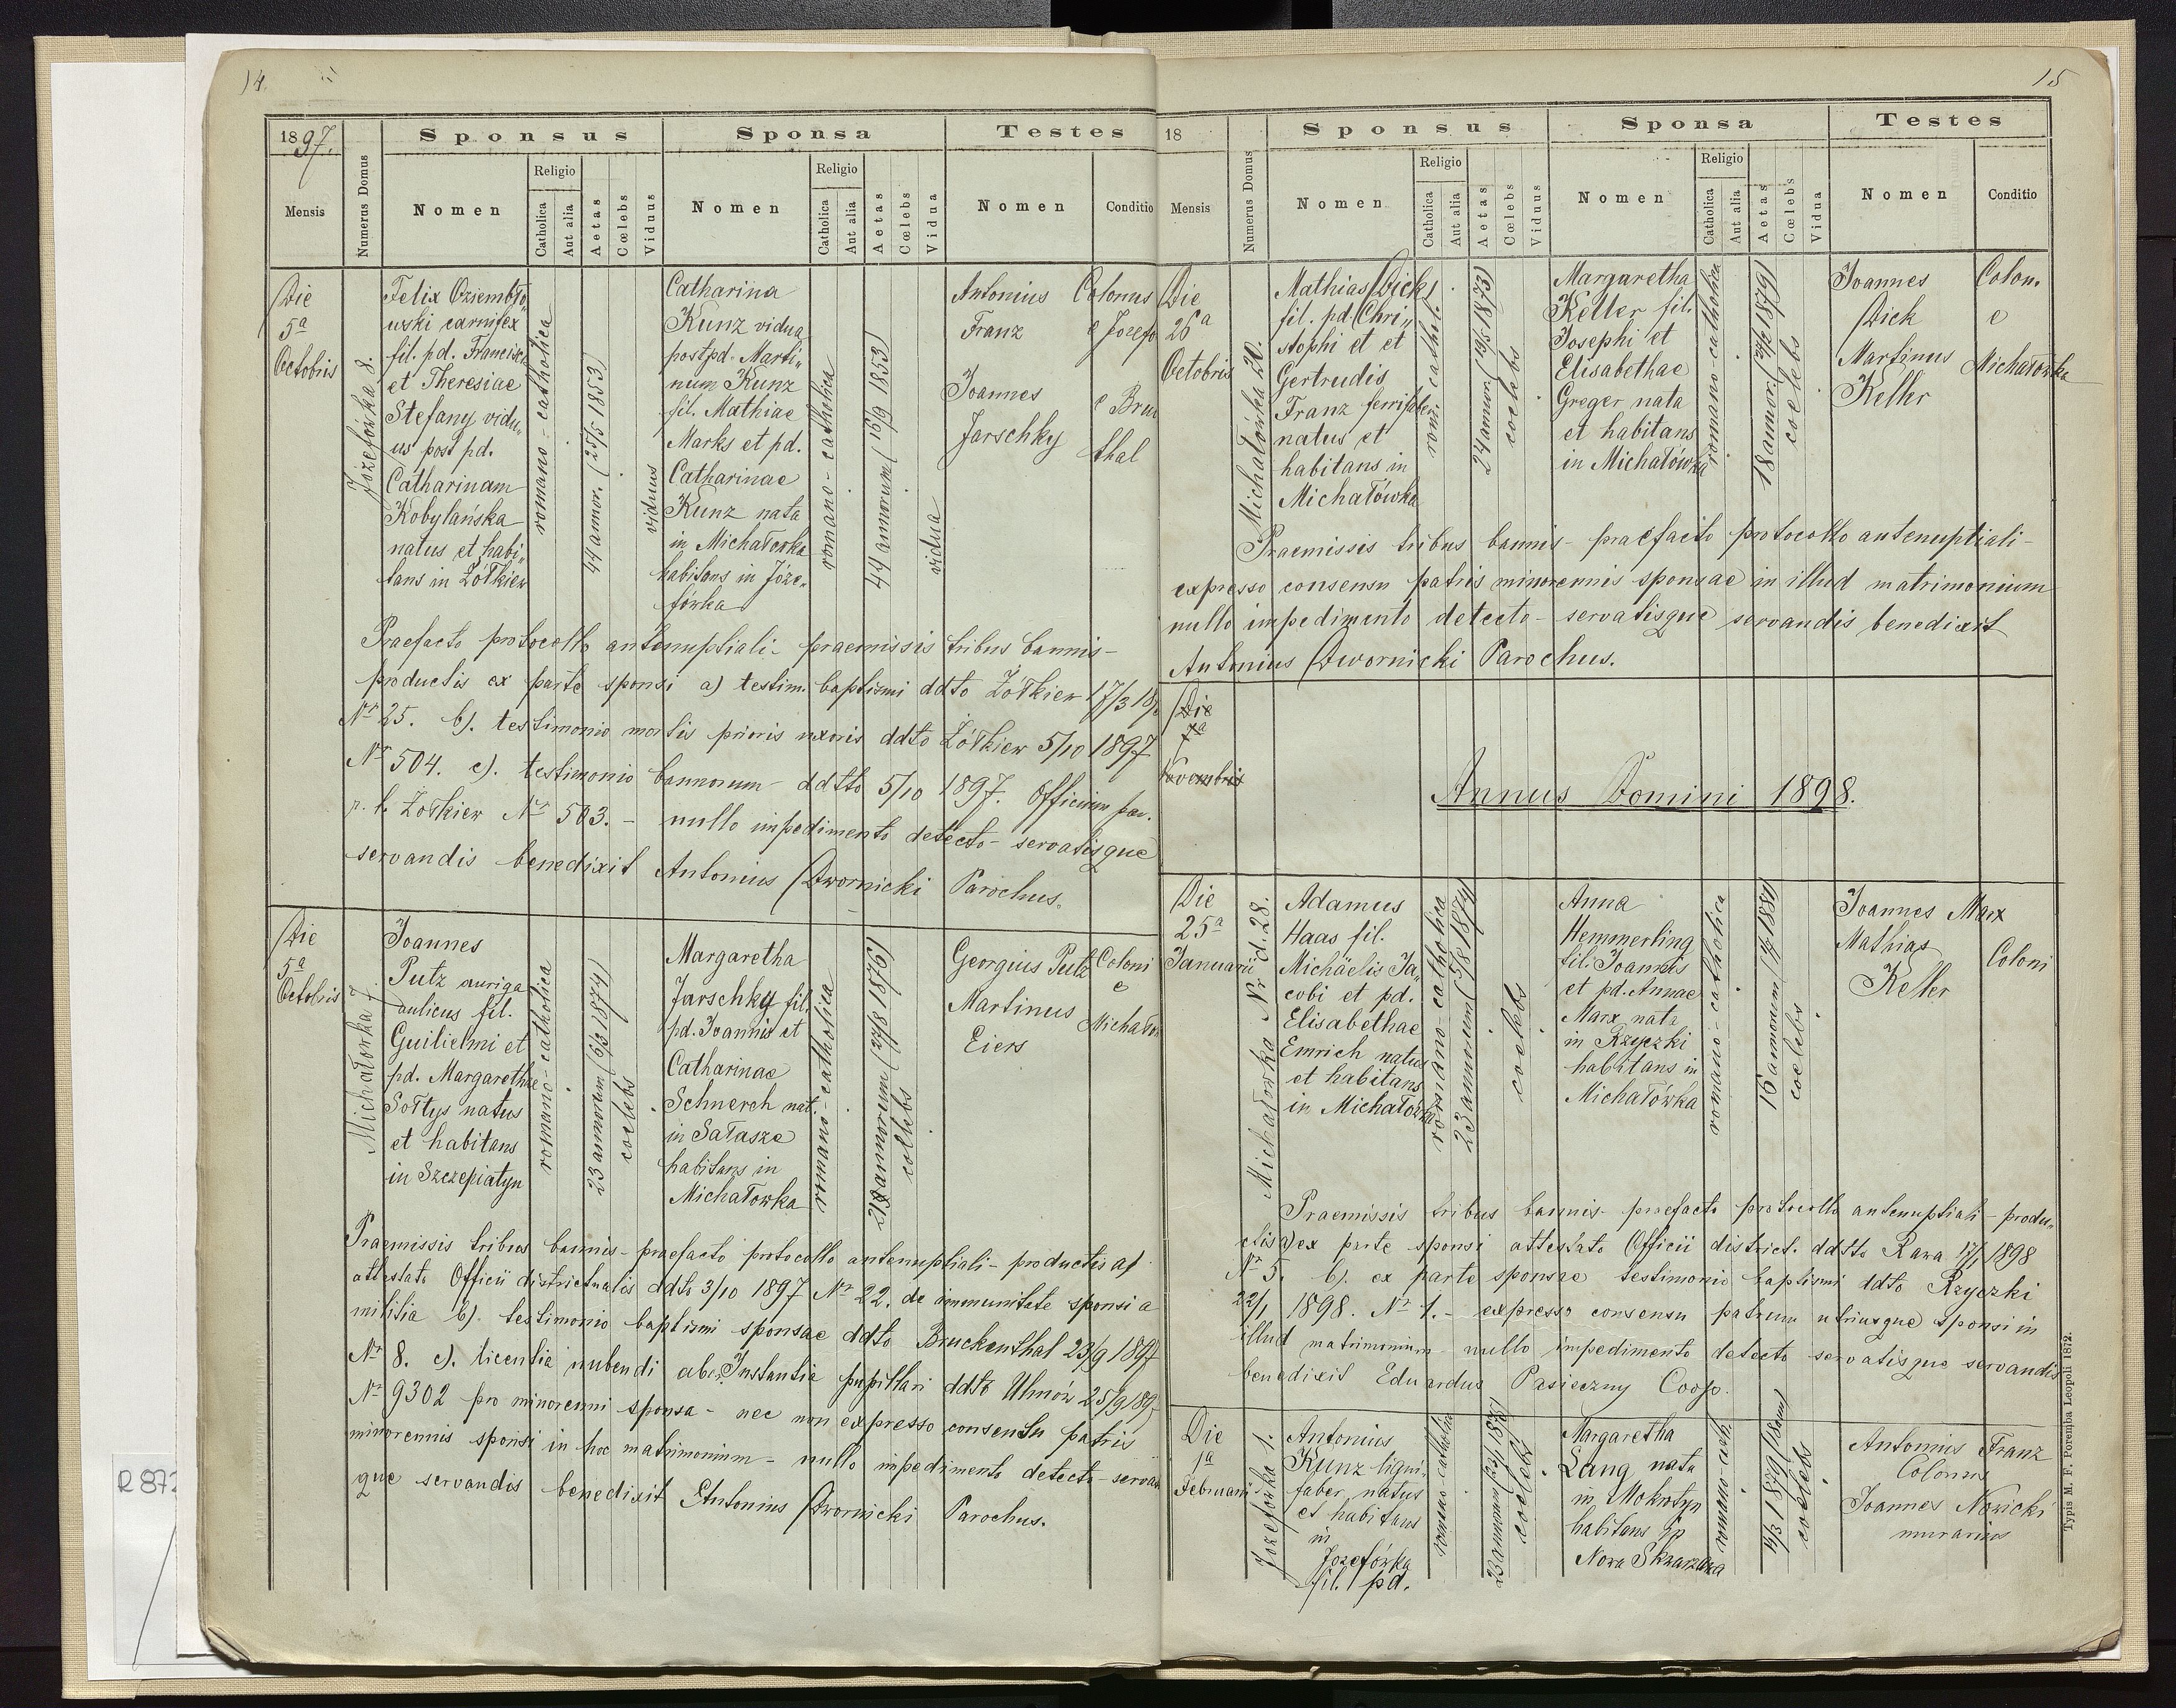 14.
1897.
Mensis
Numerus Domus
Sponsus
Nomen
Religio
Catholica
Aut alia
Aetas
Cœlebs
Viduus
Sponsa
Nomen
Religio
Catholica
Aut alia
Aetas
Cœlebs
Vidua
Testes
Nomen
Conditio
Die
5a
Octobris
Józefówka 8.
Felix Oziembło„
wski carnifex
fil. pd. Francisci
et Theresiae
Stefany vidu„
us post pd.
Catharinam
Kobylańska
natus et habi„
tans in Żółkiew
romano-catholica
44 annor. (25/5 1853)
viduus
Catharina
Kunz vidua
post pd. Marti„
num Kunz
fil. Mathiae
Marks et pd.
Catharinae
Kunz nata
in Michałowka
habitans in Józe„
fówka
romano-catholica
44 annorum (16/9 1853)
vidua
Antonius
Franz
Joannes
Jarschky
Colonus
e Jozefo
e Bruc
thal
Praefacto protocollo antenuptiali - praemissis tribus bannis -
productis ex parte sponsi a) testim. baptismi ddto Żółkiew 17/3 18
Nr 25. b). testimonio mortis prioris uxoris ddto Żółkiew 5/10 1897
Nr 504. c). testimonio bannorum - ddtto 5/10 1897. Officium par.
r. l. Żołkiew Nr 503. - nullo impedimento detecto - servatisque
servandis benedixit Antonius Dwornicki Parochus.
Die
5a
Octobris
Michałowka 7
Joannes
Putz auriga
aulicus fil.
Guilielmi et
pd. Margarethae
Sołtys natus
et habitans
in Szczepiatyn
romano-catholica
23 annorum (6/3 1874)
coelebs
Margaretha
Jarschky fil.
pd. Joannis et
Catharinae
Schnerch nat.
in Sałasze
habitans in
Michałowka
romano-catholica
coelebs
Georgius Putz
Martinus
Eiers
Coloni
e
Michałow
Praemissis tribus bannis - praefacto protocollo antenuptiali - productis a)
attestato Officii districtualis ddto 3/10 1897 Nr 22. de immunitate sponsi a
militia b). testimonio baptismi sponsae ddto Bruckenthal 23/9 1897
Nr 8. c). licentia nubendi ab Instantia pupillari ddto Uhnów 25/9 189
Nr 9302 pro minorenni sponsa - nec non expresso consensu patris
minorennis sponsi in hoc matrimonium - nullo impedimento detecto - servatis
que servandis benedixit Antonius Dwornicki Parochus.
15
18
Mensis
Numerus Domus
Sponsus
Nomen
Religio
Catholica
Aut alia
Aetas
Cœlebs
Viduus
Sponsa
Nomen
Religio
Catholica
Aut alia
Aetas
Cœlebs
Vidua
Testes
Nomen
Conditio
Die
26a
Octobris
Michałówka 20.
Mathias Dick
fil. pd. Chri„
stophi et et
Gertrudis
Franz
natus et
habitans in
Michałówka
rom. cathol.
coelebs
Margaretha
Keller fil.
Josephi et
Elisabethae
Greger nata
et habitans
in Michałówka
romano-catholica
coelebs
Joannes
Dick
Martinus
Keller
Colon.
e
Michałowka
Praemissis tribus bannis - praefacto protocollo antenuptiali -
expresso consensu patris minorennis sponsae in illud matrimonium
nullo impedimento detecto - servatisque servandis benedixit
Antonius Dwornicki Parochus.
Die
Novembris
Annus Domini 1898.
Die
25a
Januarii
Michałowka Nr d. 28.
Adamus
Haas fil.
Michäelis Ja„
cobi et pd.
Elisabethae
Emrich natus
et habitans
in Michałówka
romano-catholica
23 annorum (5/8 1874)
coelebs
Anna
Hemmerling
fil. Joannis
et pd. Annae
Marx nata
in Rzyczki
habitans in
Michałówka
romano-catholica
coelebs
Joannes Marx
Mathias
Keller
Coloni
Praemissis tribus bannis - praefacto protocollo antenuptiali - produ„
ctis a) ex parte sponsi attestato Officii district. ddtto Rawa 17/1 1898
Nr 5. b). ex parte sponsae testimonio baptismi ddto Rzyczki
22/1 1898. Nr 1. - expresso consensu patrum utriusque sponsi in
illud matrimonium - nullo impedimento detecto servatisque servandis
benedixit Eduardus Pasieczny Coop.
Die
1a
Februarii
Jozefówka 1.
Antonius
Kunz ligni„
faber natus
et habitans
in
Jozefówka
fil. pd.
romano-catholica
coelebs
Margaretha
Lang nata
in Mokrotyn
habitans in
Nowa Skwarzawa
romano-cath.
coelebs
Antonius Franz
Colonus
Joannes Nowicki
murarius
Typis M. F. Poremba Leopoli 1872.
R 872